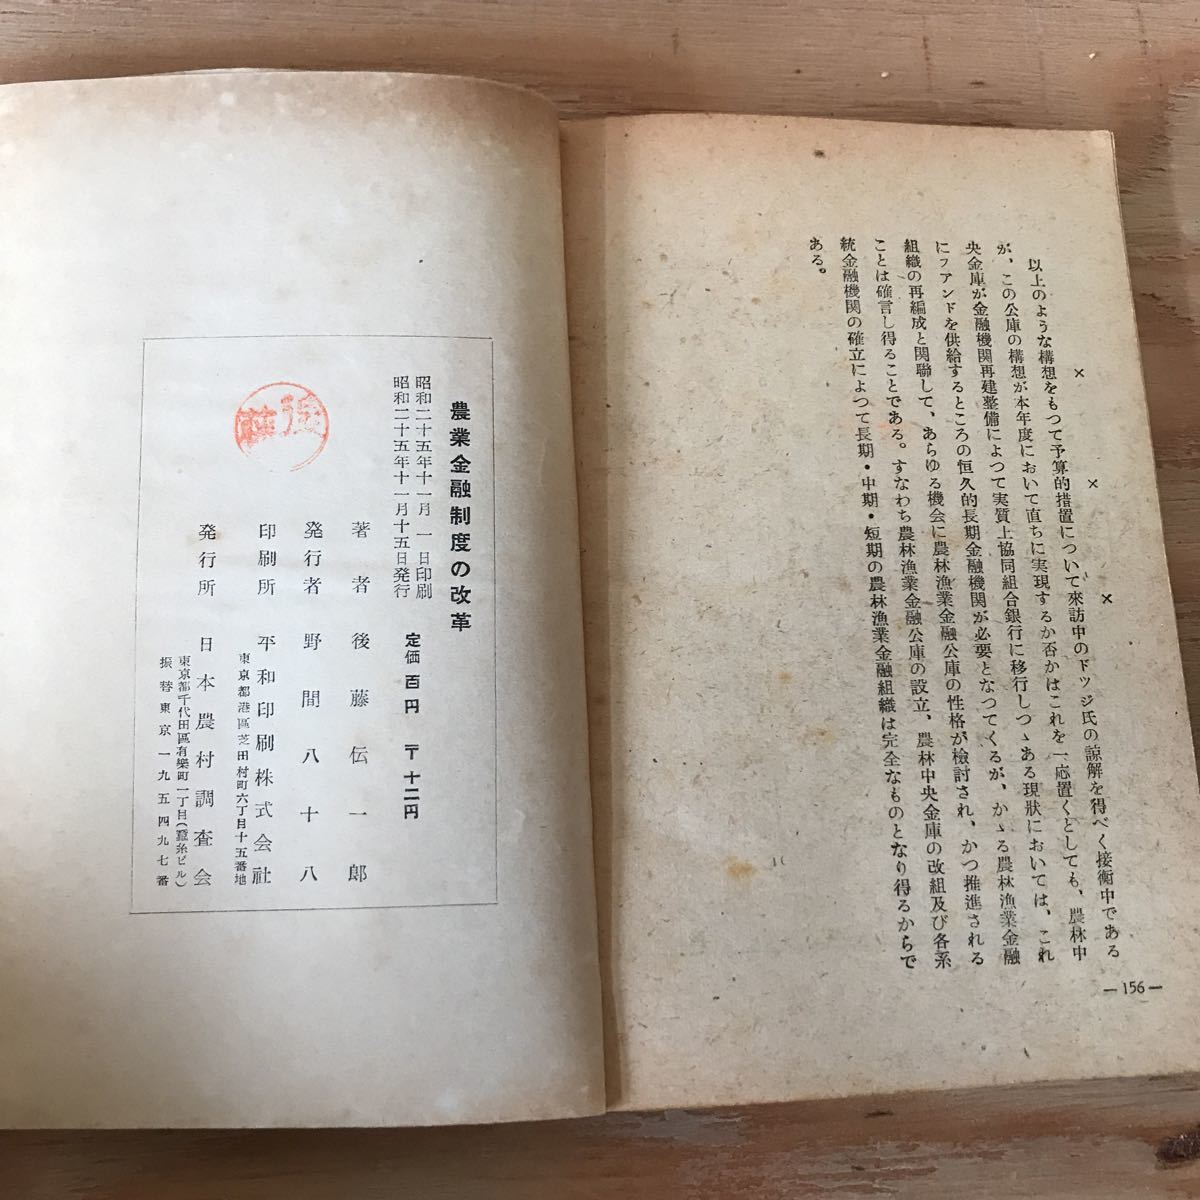 × × ×
以上のような構想をもつて予算的措置について來訪中のドツジ氏の諒解を得べく接衝中である
が、この公庫の構想が本年度において直ちに実現するか否かはこれを一応置くとしても、農林中
央金庫が金融機関再建整備によつて実質上協同組合銀行に移行しつゝある現狀においては、これ
にフアンドを供給するところの恒久的長期金融機関が必要となつてくるが、かゝる農林漁業金融
組織の再編成と関聯して、あらゆる機会に農林漁業金融公庫の性格が檢討され、かつ推進される
ことは確言し得ることである。すなわち農林漁業金融公庫の設立、農林中央金庫の改組及び各系
統金融機関の確立によつて長期・中期・短期の農林漁業金融組織は完全なものとなり得るからで
ある。
—156—
農業金融制度の改革
昭和二十五年十一月一日印刷
昭和二十五年十一月十五日発行
定価百円 〒十二円
著者 後藤伝一郎
発行者 野間八十八
印刷所 平和印刷株式会社
東京都港區芝田村町六丁目十五番地
発行所 日本農村調査会
東京都千代田區有樂町一丁目(蚕糸ビル)
振替東京一九五四九七番